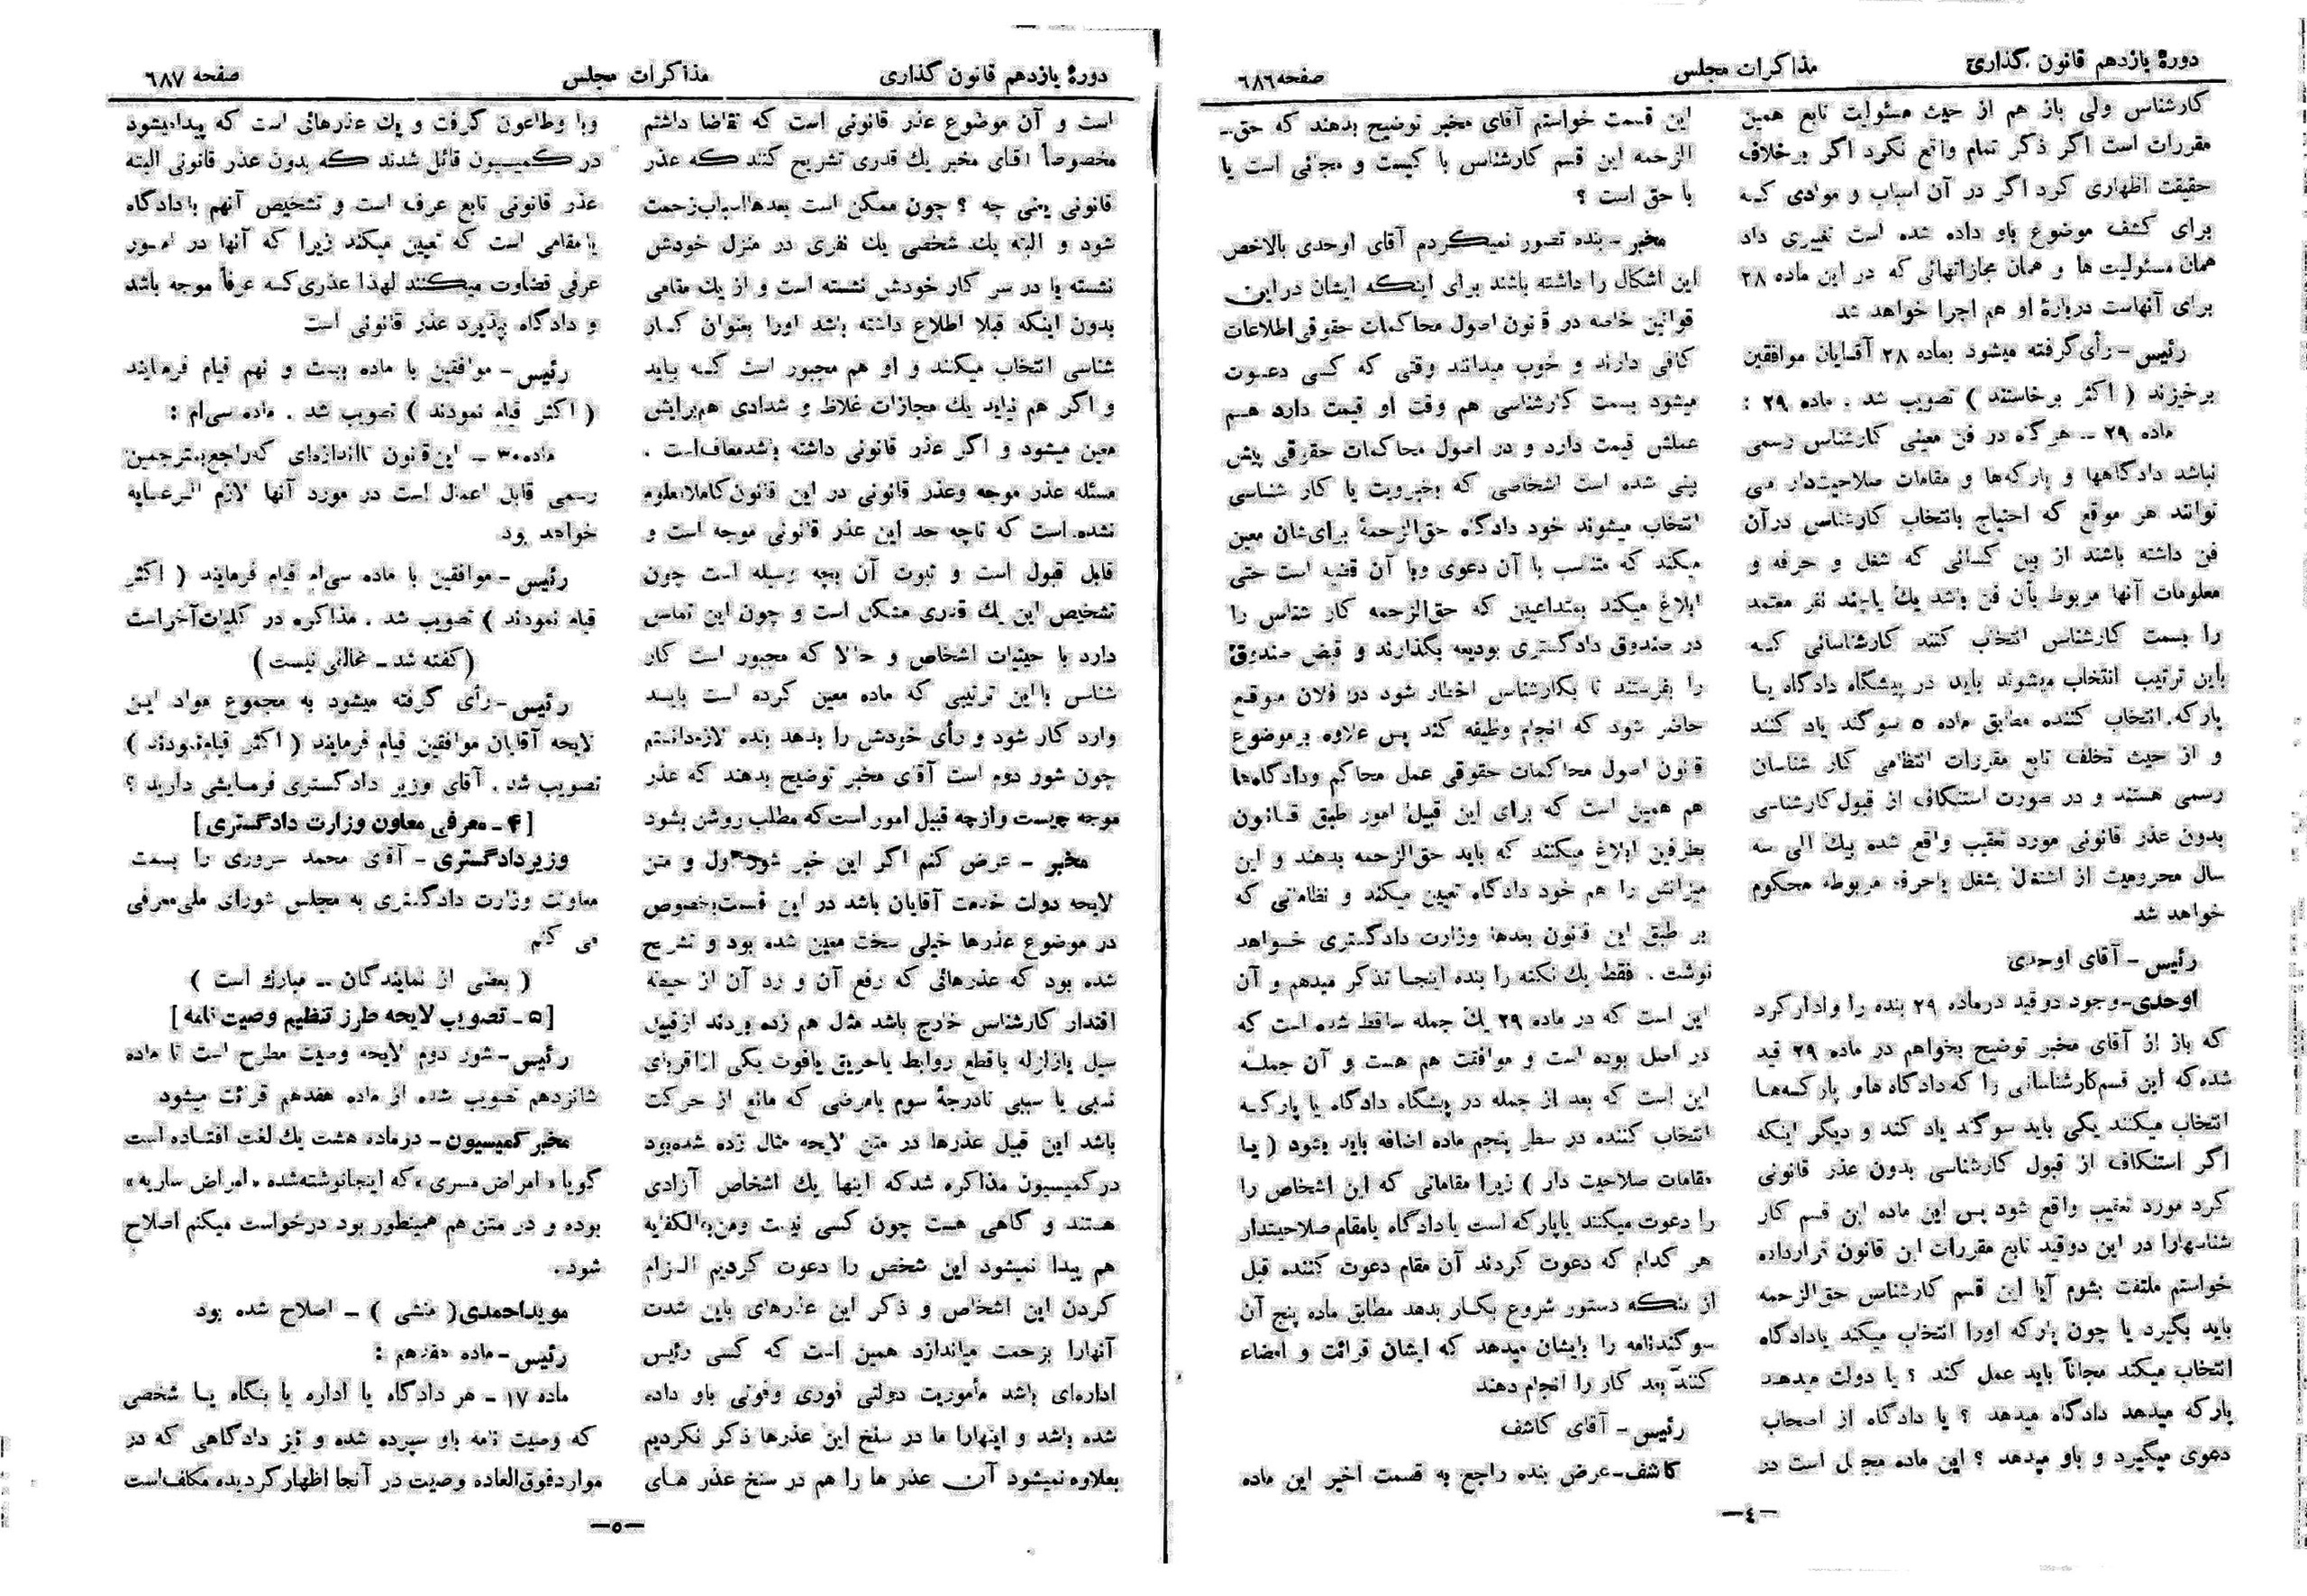 دورهٔ یازدهم قانون گذاری
مذاکرات مجلس
صفحه ۶۸۶
کارشناس ولی باز هم از حیث مسئولیت تابع همین
مقررات است اگر ذکر تمام واقع نکرد اگر برخلاف
حقیقت اظهاری کرد اگر در آن اسباب و موادی که
برای کشف موضوع باو داده شده است تغییری داد
همان مسئولیت ها و همان مجازاتهائی که در این ماده ۲۸
برای آنهاست دربارهٔ او هم اجرا خواهد شد
رئیس - رأی گرفته میشود بماده ۲۸ آقایان موافقین
برخیزند ( اکثر برخاستند ) تصویب شد . ماده ۲۹ :
ماده ۲۹ ــ هرگاه در فن معینی کارشناس رسمی
نباشد دادگاهها و پارکه‌ها و مقامات صلاحیت‌دار می
توانند هر موقع که احتیاج بانتخاب کارشناس درآن
فن داشته باشند از بین کسانی که شغل و حرفه و
معلومات آنها مربوط بآن فن باشد یك یا چند نفر معتمد
را بسمت کارشناس انتخاب کنند کارشناسانی که
باین ترتیب انتخاب میشوند باید در پیشگاه دادگاه یا
پارکه انتخاب کننده مطابق ماده ۵ سوگند یاد کنند
و از حیث تخلف تابع مقررات انتظامی کار شناسان
رسمی هستند و در صورت استنکاف از قبول کارشناسی
بدون عذر قانونی مورد تعقیب واقع شده بیك الی سه
سال محرومیت از اشتغال بشغل یا حرفه مربوطه محکوم
خواهد شد
رئیس - آقای اوحدی
اوحدی-وجود دوقید درماده ۲۹ بنده را وادارکرد
که باز از آقای مخبر توضیح بخواهم در ماده ۲۹ قید
شده که این قسم کارشناسانی را که دادگاه هاو پارکه‌ها
انتخاب میکنند یکی باید سوگند یاد کند و دیگر اینکه
اگر استنکاف از قبول کارشناسی بدون عذر قانونی
کرد مورد تعقیب واقع شود پس این ماده این قسم کار
شناسهارا در این دوقید تابع مقررات این قانون قرارداده
خواستم ملتفت بشوم آیا این قسم کارشناس حق‌الزحمه
باید بگیرد یا چون پارکه اورا انتخاب میکند یادادگاه
انتخاب میکند مجاناً باید عمل کند ؟ یا دولت میدهد
پارکه میدهد دادگاه میدهد ؟ یا دادگاه از اصحاب
دعوی میگیرد و باو میدهد ؟ این ماده مجمل است در
این قسمت خواستم آقای مخبر توضیح بدهند که حق-
الزحمه این قسم کارشناس با کیست و مجانی است یا
با حق است ؟
مخبر - بنده تصور نمیکردم آقای اوحدی بالاخص
این اشکال را داشته باشند برای اینکه ایشان دراین
قوانین خاصه در قانون اصول محاکمات حقوقی اطلاعات
کافی دارند و خوب میدانند وقتی که کسی دعوت
میشود بسمت کارشناسی هم وقت او قیمت دارد هم
عملش قیمت دارد و در اصول محاکمات حقوقی پیش
بینی شده است اشخاصی که بخبرویت یا کار شناسی
انتخاب میشوند خود دادگاه حق‌الزحمهٔ برای‌شان معین
میکند که متناسب با آن دعوی ویا آن قضیه است حتی
ابلاغ میکند بمتداعیین که حق‌الزحمه کار شناس را
در صندوق دادگستری بودیعه بگذارند و قبض صندوق
را بفرستند تا بکارشناس اخطار شود در فلان موقع
حاضر شود که انجام وظیفه کند پس علاوه برموضوع
قانون اصول محاکمات حقوقی عمل محاکم ودادگاه‌ها
هم همین است که برای این قبیل امور طبق قانون
بطرفین ابلاغ میکنند که باید حق‌الزحمه بدهند و این
میزانش را هم خود دادگاه تعیین میکند و نظاماتی که
بر طبق این قانون بعدها وزارت دادگستری خواهد
نوشت . فقط یك نکته را بنده اینجا تذکر میدهم و آن
این است که در ماده ۲۹ یك جمله ساقط شده است که
در اصل بوده است و موافقت هم هست و آن جمله
این است که بعد از جمله در پیشگاه دادگاه یا پارکه
انتخاب کننده در سطر پنجم ماده اضافه باید بشود ( یا
مقامات صلاحیت دار ) زیرا مقاماتی که این اشخاص را
را دعوت میکنند یاپارکه است یا دادگاه یامقام صلاحیتدار
هر کدام که دعوت کردند آن مقام دعوت کننده قبل
از اینکه دستور شروع بکار بدهد مطابق ماده پنج آن
سوگندنامه را بایشان میدهد که ایشان قرائت و امضاء
کنند بعد کار را انجام دهند
رئیس - آقای کاشف
کاشف-عرض بنده راجع به قسمت اخیر این ماده
—٤—
دورهٔ یازدهم قانون گذاری
مذاکرات مجلس
صفحه ۶۸۷
است و آن موضوع عذر قانونی است که تقاضا داشتم
مخصوصاً آقای مخبر یك قدری تشریح کنند که عذر
قانونی یعنی چه ؟ چون ممکن است بعدهااسباب‌زحمت
شود و البته یك شخصی یك نفری در منزل خودش
نشسته یا در سر کار خودش نشسته است و از یك مقامی
بدون اینکه قبلا اطلاع داشته باشد اورا بعنوان کار
شناسی انتخاب میکنند و او هم مجبور است که بیاید
و اگر هم نیاید یك مجازات غلاظ و شدادی هم‌برایش
معین میشود و اگر عذر قانونی داشته باشدمعاف‌است .
مسئله عذر موجه وعذر قانونی در این قانون کاملا معلوم
نشده است که تاچه حد این عذر قانونی موجه است و
قابل قبول است و ثبوت آن بچه وسیله است چون
تشخیص این یك قدری مشکل است و چون این تماس
دارد با حیثیات اشخاص و حالا که مجبور است کار
شناس با این ترتیبی که ماده معین کرده است باید
وارد کار شود و رأی خودش را بدهد بنده لازم‌دانستم
چون شور دوم است آقای مخبر توضیح بدهند که عذر
موجه چیست وازچه قبیل امور است‌که مطلب روشن بشود
مخبر - عرض کنم اگر این خبر شور اول و متن
لایحه دولت خدمت آقایان باشد در این قسمت‌بخصوص
در موضوع عذرها خیلی سخت معین شده بود و تشریح
شده بود که عذرهائی که رفع آن و رد آن از حیطه
اقتدار کارشناس خارج باشد مثل هم زده بودند ازقبیل
سیل یازلزله یاقطع روابط یاحریق یافوت یکی ازاقربای
نسبی یا سببی تادرجهٔ سوم یامرضی که مانع از حرکت
باشد این قبیل عذرها در متن لایحه مثال زده شده‌بود
در کمیسیون مذاکره شدکه اینها یك اشخاص آزادی
هستند و گاهی هست چون کسی نیست ومن‌به‌الکفایه
هم پیدا نمیشود این شخص را دعوت کردیم الزام
کردن این اشخاص و ذکر این عذرهای باین شدت
آنهارا بزحمت میاندازد همین است که کسی رئیس
اداره‌ای باشد مأموریت دولتی فوری وفوتی باو داده
شده باشد و اینهارا ما در سنخ این عذرها ذکر نکردیم
بعلاوه نمیشود آن عذر ها را هم در سنخ عذر های
وبا وطاعون گرفت و یك عذرهائی است که پیدامیشود
در کمیسیون قائل شدند که بدون عذر قانونی البته
عذر قانونی تابع عرف است و تشخیص آنهم بادادگاه
یا مقامی است که تعیین میکند زیرا که آنها در امور
عرفی قضاوت میکنند لهذا عذری که عرفاً موجه باشد
و دادگاه بپذیرد عذر قانونی است
رئیس - موافقین با ماده بیست و نهم قیام فرمایند
( اکثر قیام نمودند ) تصویب شد . ماده سی‌ام :
ماده۳۰ ــ این‌قانون تااندازه‌ای که‌راجع‌بمترجمین
رسمی قابل اعمال است در مورد آنها لازم الرعایه
خواهد بود
رئیس - موافقین با ماده سی‌ام قیام فرمایند ( اکثر
قیام نمودند ) تصویب شد . مذاکره در کلیات‌آخراست
(گفته شد ــ مخالفی نیست)
رئیس-رأی گرفته میشود به مجموع مواد این
لایحه آقایان موافقین قیام فرمایند ( اکثر قیام‌نمودند )
تصویب شد . آقای وزیر دادگستری فرمایشی دارید ؟
[۴ ــ معرفی معاون وزارت دادگستری]
وزیردادگستری - آقای محمد سروری را بسمت
معاونت وزارت دادگستری به مجلس شورای ملی‌معرفی
می کنم
( بعضی از نمایندگان ــ مبارك است )
[۵ ــ تصویب لایحه طرز تنظیم وصیت نامه]
رئیس-شور دوم لایحه وصیت مطرح است تا ماده
شانزدهم تصویب شده از ماده هفدهم قرائت میشود
مخبر کمیسیون - درماده هشت یك لغت افتاده است
گویا « امراض مسری » که اینجانوشته‌شده « امراض ساریه »
بوده و در متن هم همینطور بود درخواست میکنم اصلاح
شود.
مویداحمدی( منشی ) ــ اصلاح شده بود
رئیس-ماده هفدهم :
ماده ۱۷ ــ هر دادگاه یا اداره یا بنگاه یا شخصی
که وصیت نامه باو سپرده شده و نیز دادگاهی که در
مواردفوق‌العاده وصیت در آنجا اظهارگردیده مکلف‌است
—٥—